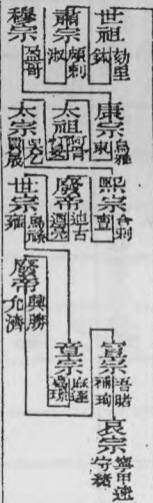 世祖
劾里
鉢
肅宗
頗剌
淑
穆宗
盈哥
康宗
烏雅
束
太祖
阿骨
打旻
太宗
吳乞
買晟
熙宗
合剌
亶
廢帝
迪古
迺亮
世宗
烏祿
雍
廢帝
興勝
允濟
章宗
麻達
葛璟
宣宗
吾睹
補珣
哀宗
寧甲速
守緒